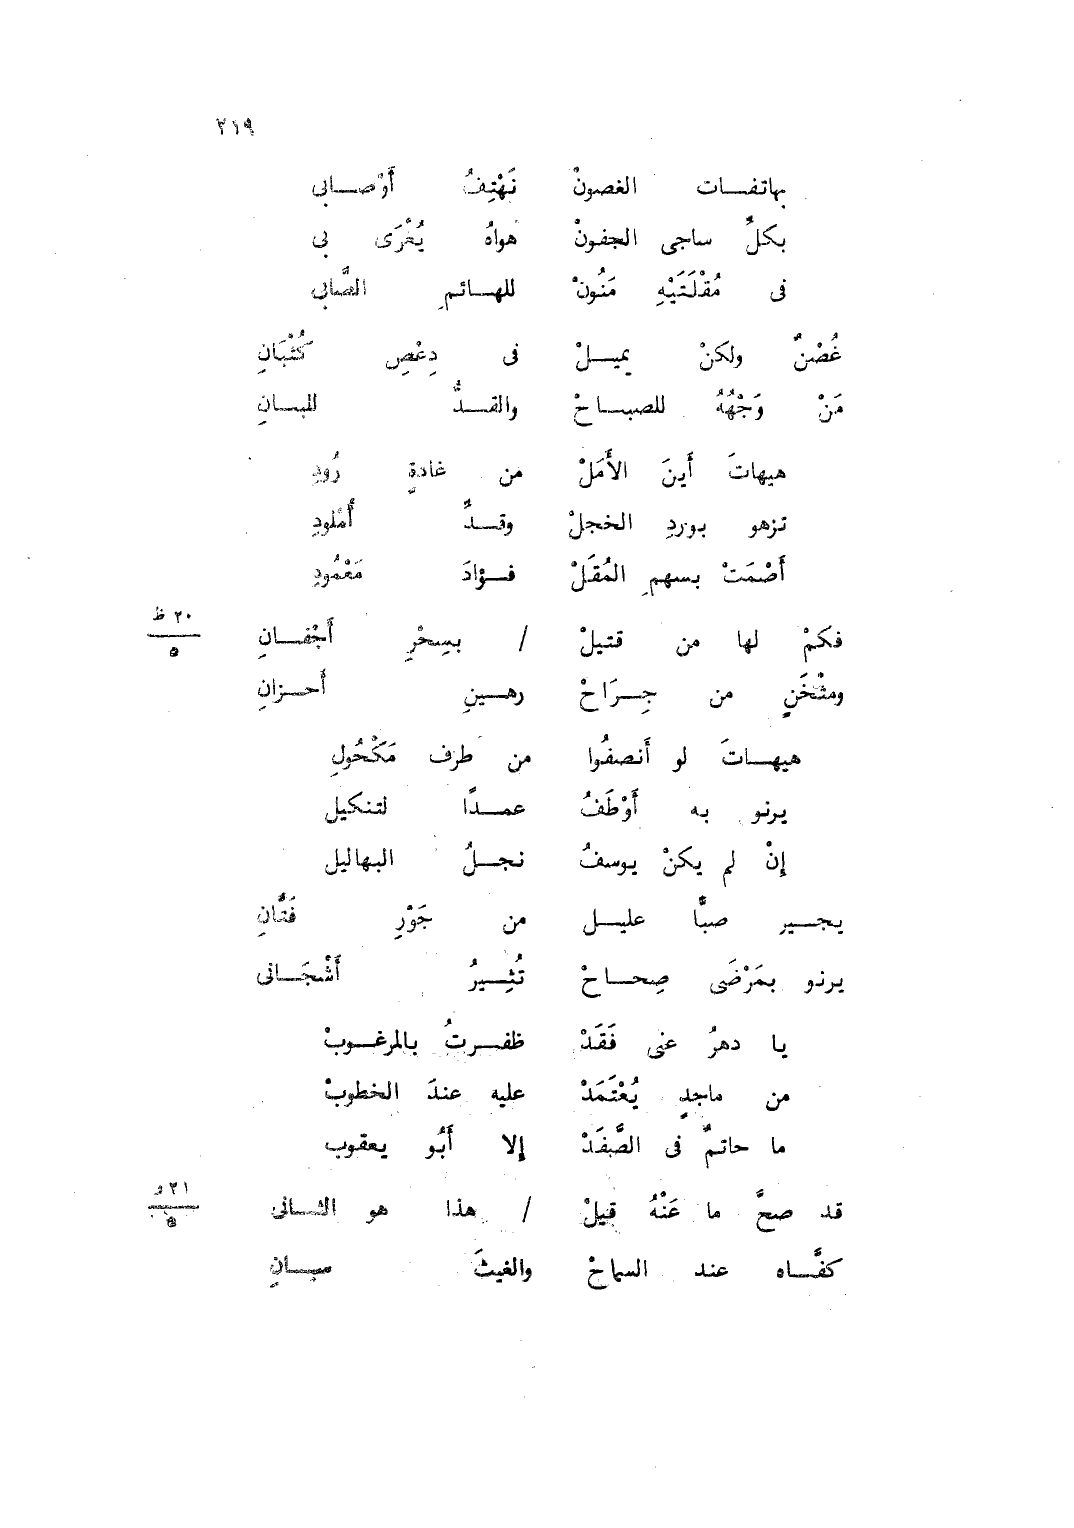 ٢١٩
بهاتفات الغصونْ تَهْتِفُ أَوْصابى
بكلِّ ساجى الجفونْ هواهُ يُغْرَى بى
فى مُقْلَتَيْهِ مَنُونْ للهائمِ الصَّابى
غُصْنٌ ولكنْ يميلْ فى دِعْصِ كُثْبَانِ
مَنْ وَجْهُهُ للصباحْ والقدُّ للبانِ
هيهاتَ أَينَ الأَمَلْ من غادةٍ رُودِ
تزهو بوردِ الخجلْ وقدٍّ أُملودِ
أَصْمَتْ بسهمِ المُقَلْ فؤادَ مَعْمُودِ
فكَمْ لها من قتيلْ / بسِحْرِ أَجْفانِ
٢٠ ظ
٥
ومثْخَنٍ من جِرَاحْ رهينِ أَحزانِ
هيهاتَ لو أَنصفُوا من طرف مَكْحُولِ
يرنو به أَوْطَفُ عمدًا لتنكيل
إِنْ لم يكنْ يوسفُ نجلُ البهاليل
يجير صبًّا عليل من جَوْرِ فَتَّانِ
يرنو بمَرْضَى صِحاحْ تُثِيرُ أَشْجَانى
يا دهرُ عنى فَقَدْ ظفرتُ بالمرغوبْ
من ماجدٍ يُعْتَمَدْ عليه عندَ الخطوبْ
ما حاتمٌ فى الصَّفَدْ إلا أَبُو يعقوب
قد صحَّ ما عَنْهُ قيلْ / هذا هو الثانى
٢١ و
٥
كفَّاه عند السماحْ والغيثَ سيانِ